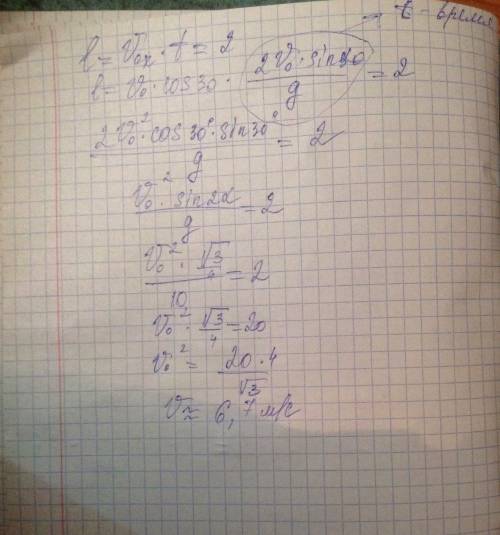 t - время
l = v₀ₓ · t = 2
l = v₀ · cos 30 · 2v₀ · sin 30 / g = 2
2v₀² · cos 30° · sin 30° / g = 2
v₀² · sin 2α / g = 2
v₀² · √3/4 / 10 = 2
v₀² · √3/4 = 20
v₀² = 20 · 4 / √3
v ≈ 6,7 м/с